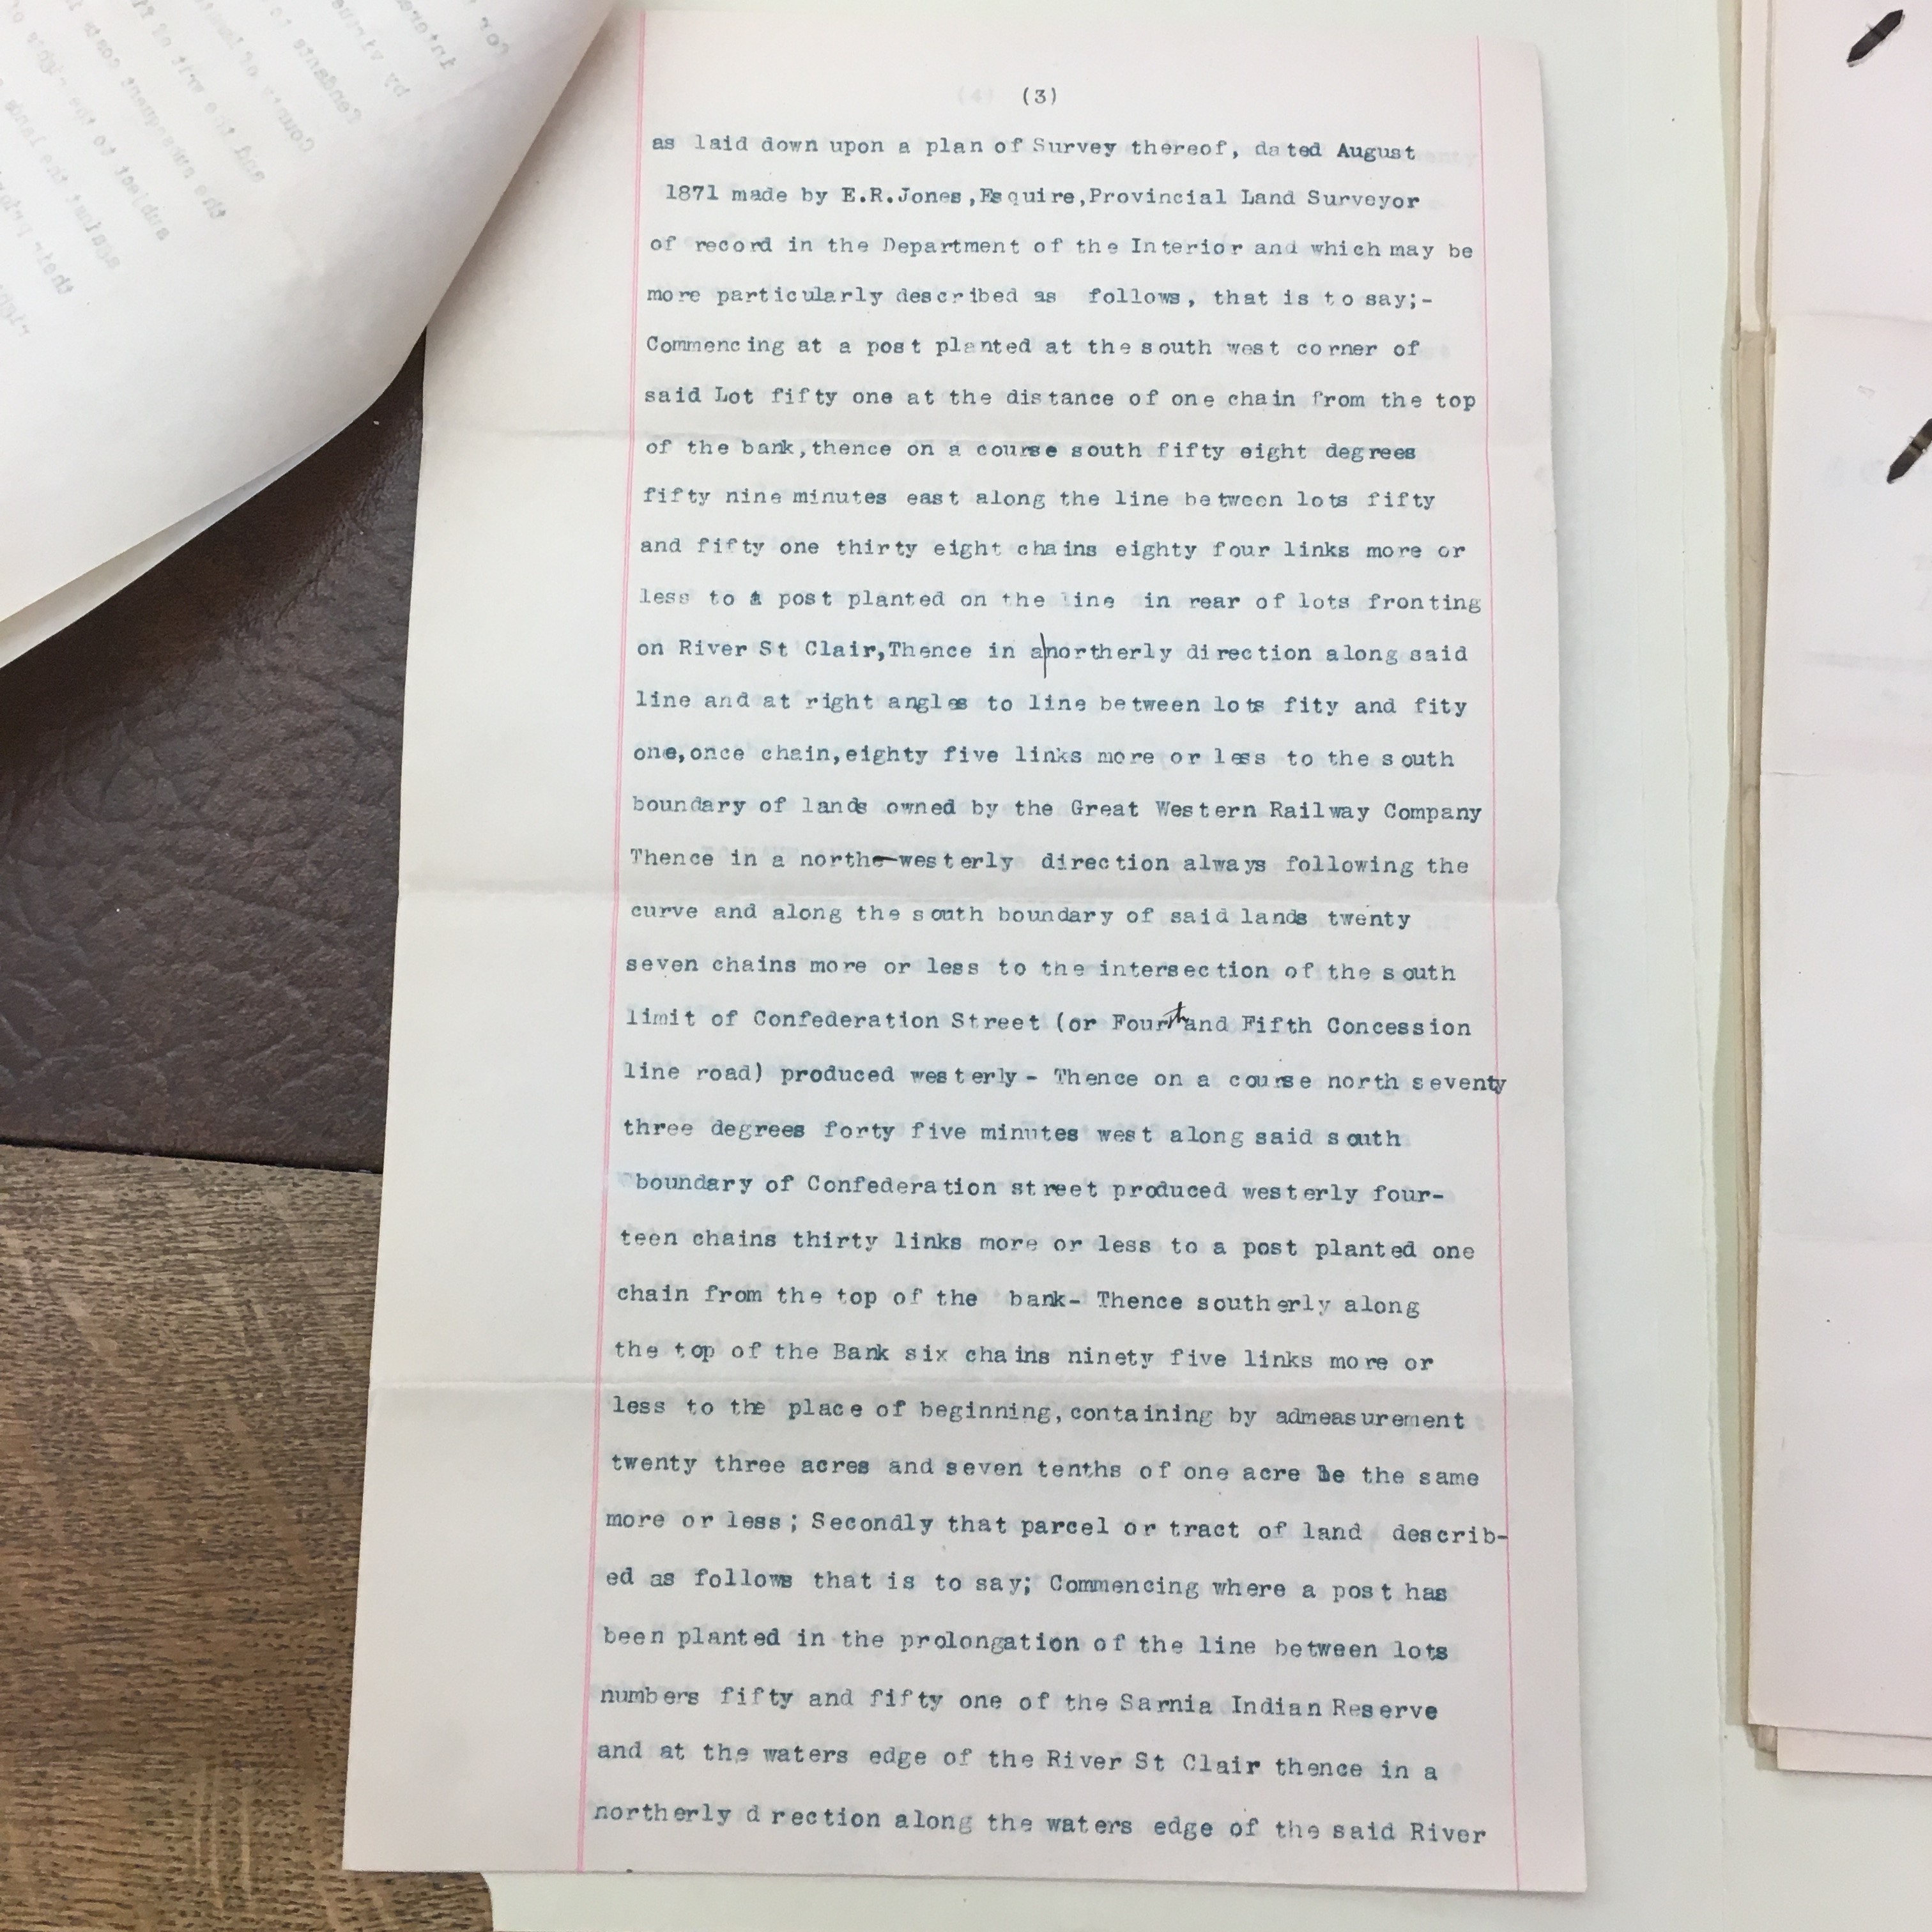 (3)
as laid down upon a plan of Survey thereof, dated August
1871 made by E.R.Jones,Esquire,Provincial Land Surveyor
of record in the Department of the Interior and which may be
more particularly described as follows, that is to say;-
Commencing at a post planted at the south west corner of
said Lot fifty one at the distance of one chain from the top
of the bank,thence on a course south fifty eight degrees
fifty nine minutes east along the line between lots fifty
and fifty one thirty eight chains eighty four links more or
less to a post planted on the line in rear of lots fronting
on River St Clair,Thence in a|northerly direction along said
line and at right angles to line between lots fity and fity
one,once chain,eighty five links more or less to the south
boundary of lands owned by the Great Western Railway Company
Thence in a north-westerly direction always following the
curve and along the south boundary of said lands twenty
seven chains more or less to the intersection of the south
limit of Confederation Street (or Fourth and Fifth Concession
line road) produced westerly - Thence on a course north seventy
three degrees forty five minutes west along said south
boundary of Confederation street produced westerly four-
teen chains thirty links more or less to a post planted one
chain from the top of the bank- Thence southerly along
the top of the Bank six chains ninety five links more or
less to the place of beginning,containing by admeasurement
twenty three acres and seven tenths of one acre be the same
more or less; Secondly that parcel or tract of land describ-
ed as follows that is to say; Commencing where a post has
been planted in the prolongation of the line between lots
numbers fifty and fifty one of the Sarnia Indian Reserve
and at the waters edge of the River St Clair thence in a
northerly d rection along the waters edge of the said River